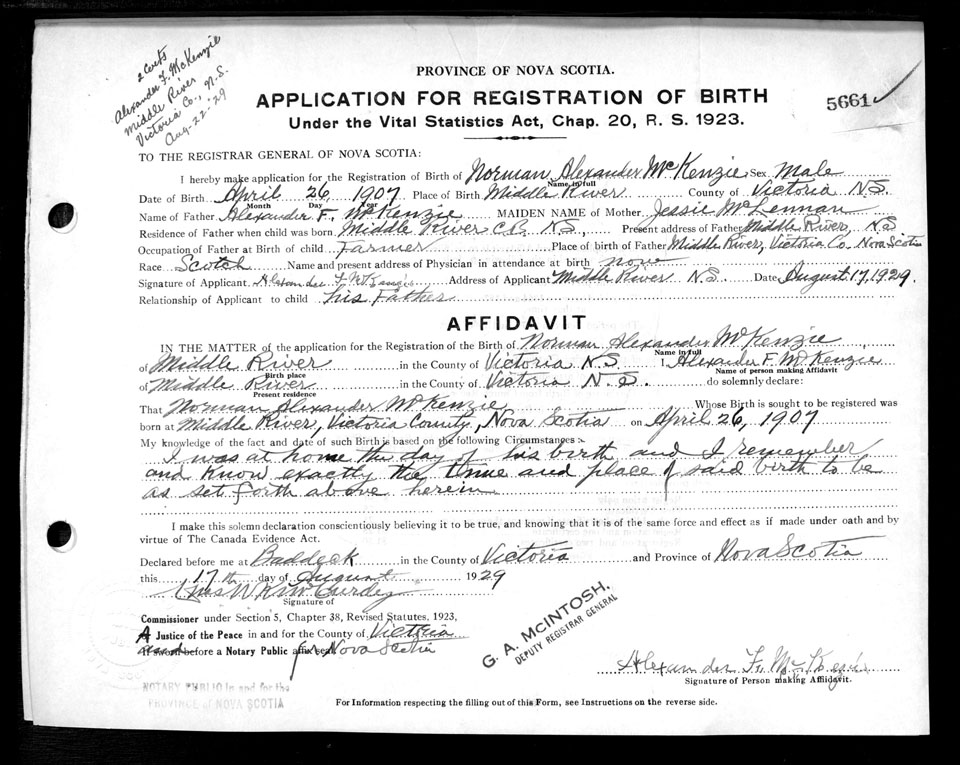 2 Certs
Alexander F. McKenzie
Middle River
Victoria Co., N.S.
Aug-22-'29
PROVINCE OF NOVA SCOTIA.
APPLICATION FOR REGISTRATION OF BIRTH
5661
Under the Vital Statistics Act, Chap. 20, R. S. 1923.
TO THE REGISTRAR GENERAL OF NOVA SCOTIA:
I hereby make application for the Registration of Birth of Norman Alexander McKenzie Sex Male
Name in full
Date of Birth April 26, 1907 Place of Birth Middle River County of Victoria N.S.
Month Day Year
Name of Father Alexander F. McKenzie MAIDEN NAME of Mother Jessie McLennan
Residence of Father when child was born Middle River C.B. N.S., Present address of Father Middle River, N.S
Occupation of Father at Birth of child Farmer Place of birth of Father Middle River, Victoria Co. Nova Scotia
Race Scotch Name and present address of Physician in attendance at birth none
Signature of Applicant Alexander F. McKenzie Address of Applicant Middle River N.S. Date August 17, 1929.
Relationship of Applicant to child his Father
AFFIDAVIT
IN THE MATTER of the application for the Registration of the Birth of Norman Alexander McKenzie
Name in full
of Middle River in the County of Victoria N.S. I, Alexander F. McKenzie
Birth place Name of person making Affidavit
of Middle River in the County of Victoria N.S. do solemnly declare:
Present residence
That Norman Alexander McKenzie Whose Birth is sought to be registered was
born at Middle River, Victoria County, Nova Scotia on April 26, 1907
My knowledge of the fact and date of such Birth is based on the following Circumstances:
I was at home the day of his birth and I remember
and know exactly the time and place of said birth to be
as set forth above herein
I make this solemn declaration conscientiously believing it to be true, and knowing that it is of the same force and effect as if made under oath and by
virtue of The Canada Evidence Act.
Declared before me at Baddeck in the County of Victoria and Province of Nova Scotia
this 17th day of August 1929
McCurdy
Signature of
Commissioner under Section 5, Chapter 38, Revised Statutes, 1923,
A Justice of the Peace in and for the County of Victoria
before a Notary Public for Nova Scotia
G. A. McINTOSH,
DEPUTY REGISTRAR GENERAL
Alexander F. McKenzie
Signature of Person making Affidavit.
NOTARY PUBLIC in and for the
PROVINCE of NOVA SCOTIA
For Information respecting the filling out of this Form, see Instructions on the reverse side.